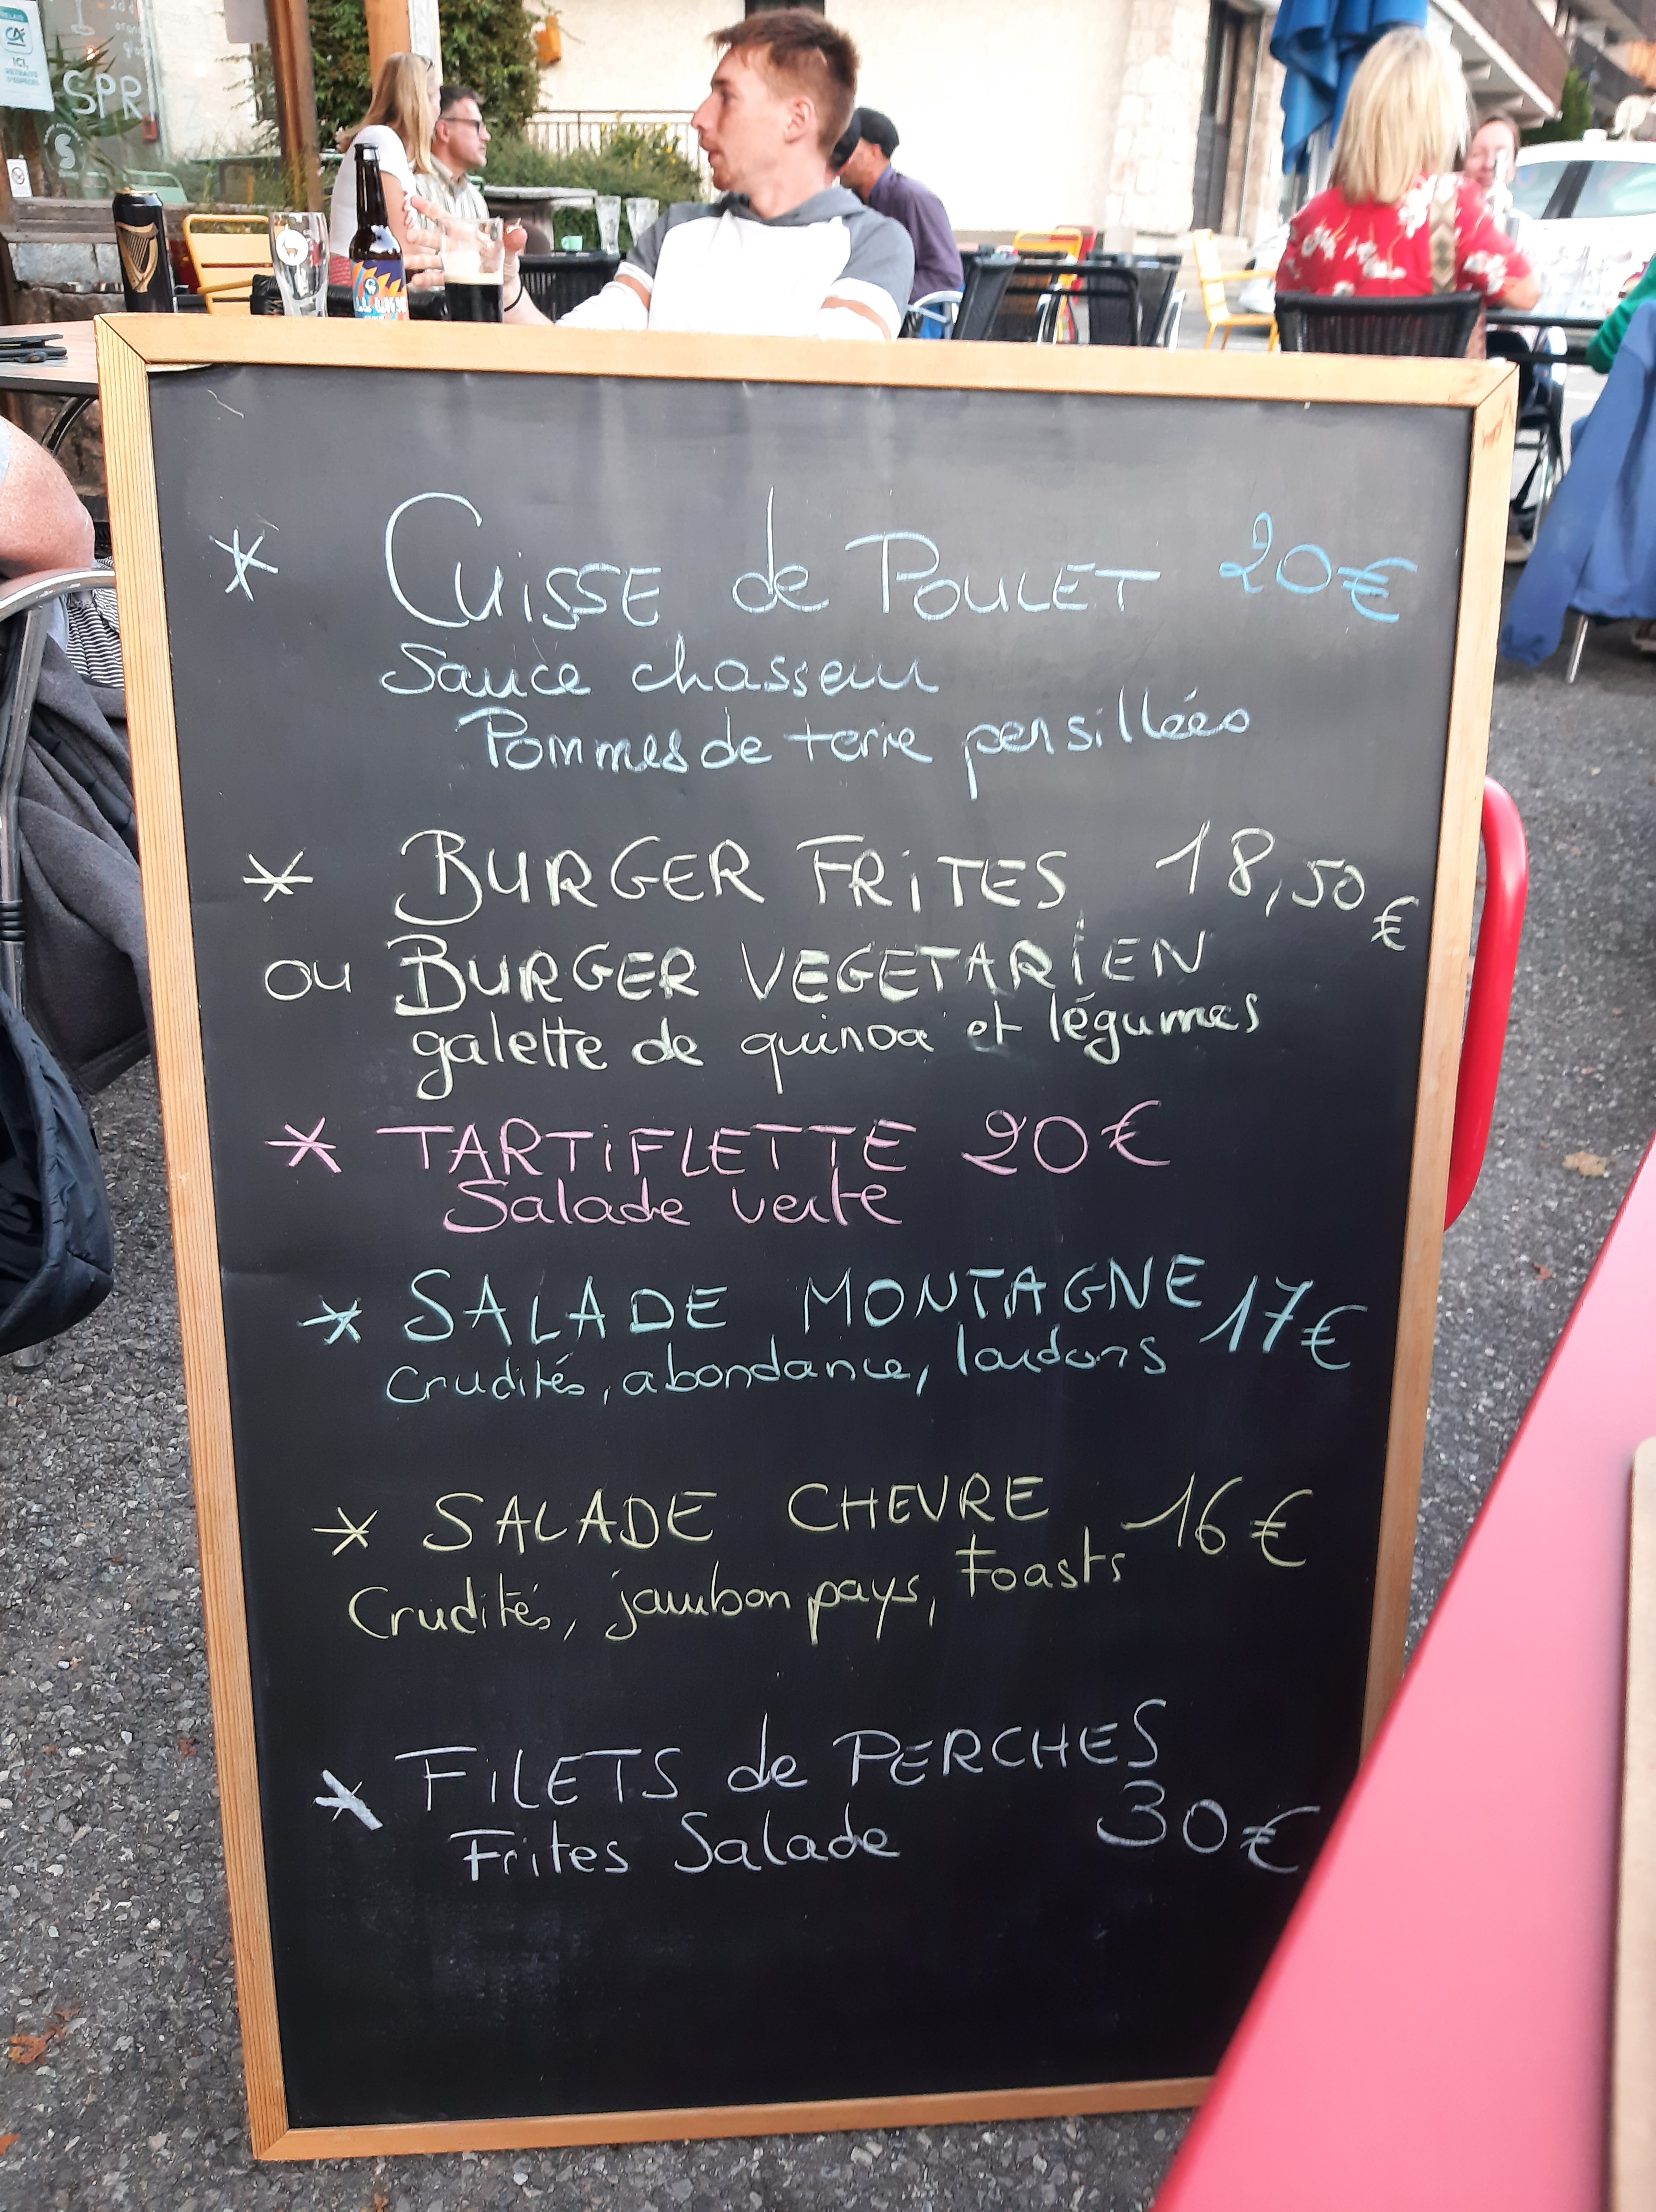 RELAIS
CA
ICI,
SPRITZ
* CUISSE de POULET 20€
Sauce chasseur
Pommes de terre persillées
* BURGER FRITES 18,50 €
ou BURGER VEGETARIEN
galette de quinoa et légumes
* TARTIFLETTE 20€
Salade verte
* SALADE MONTAGNE 17€
Crudités, abondance, lardons
* SALADE CHEVRE 16€
Crudités, jambon pays, toasts
* FILETS de PERCHES
Frites Salade 30€